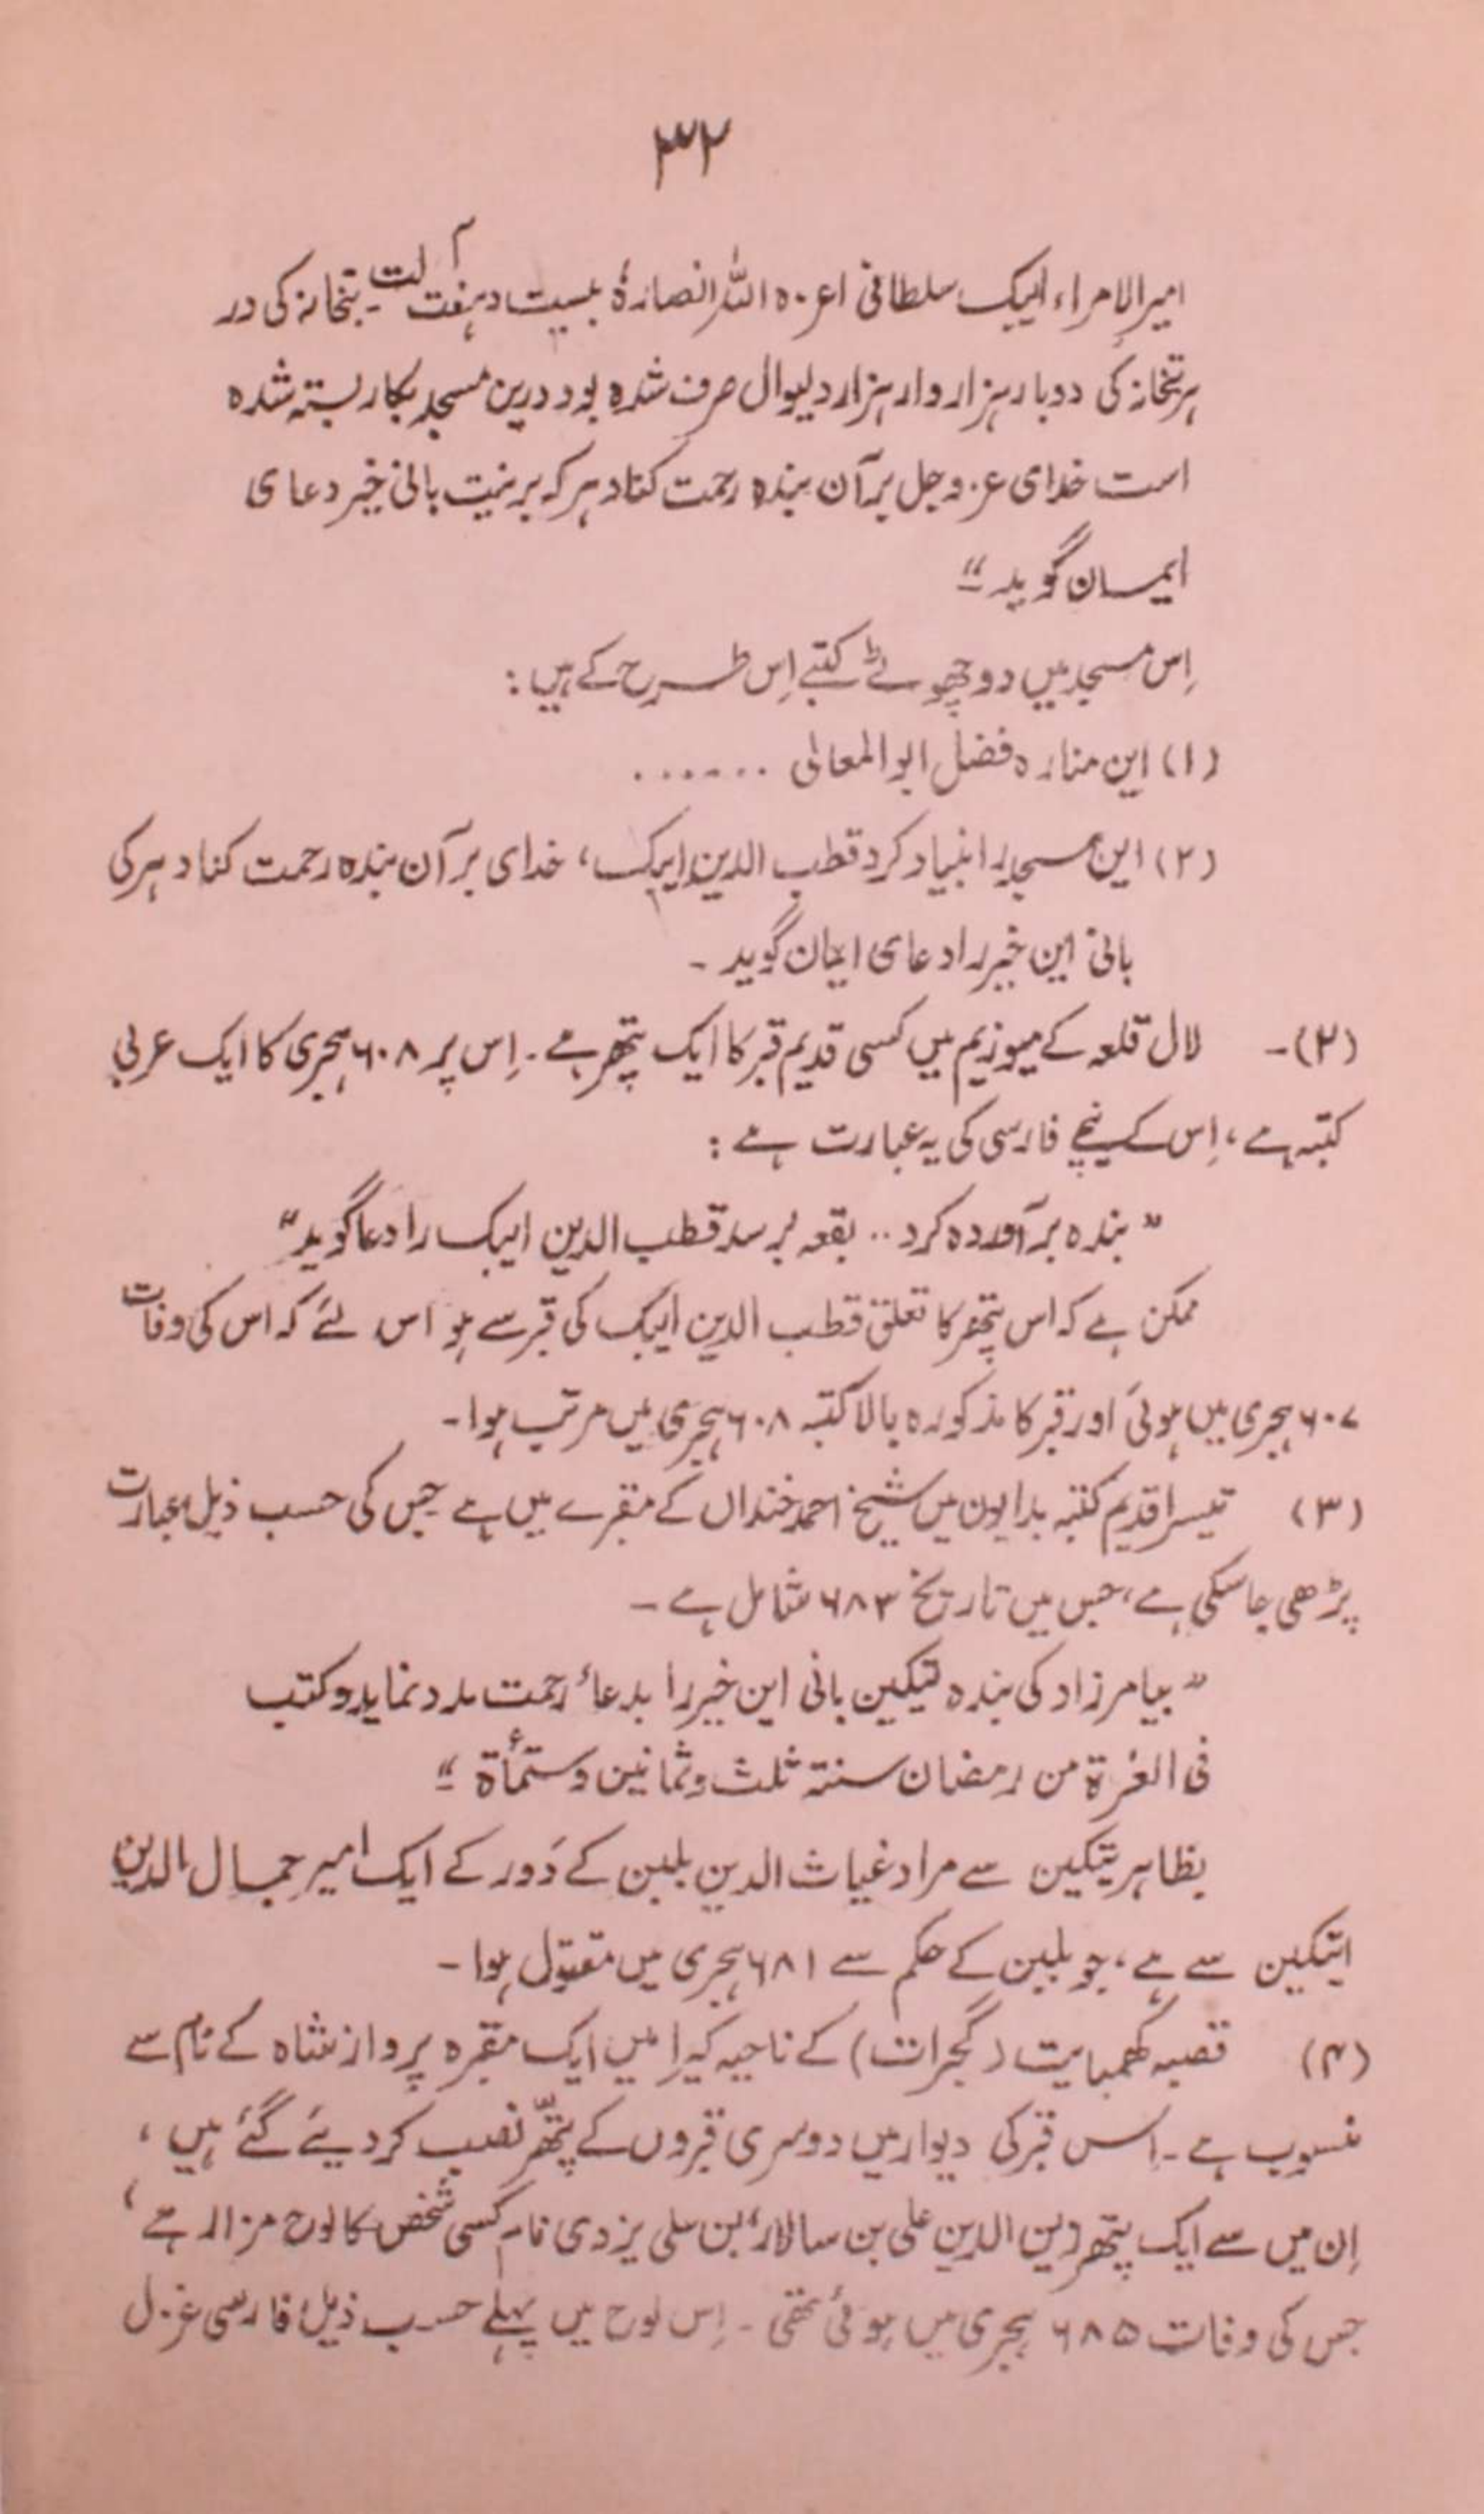 ۳۲
امیرالامراء ایبک سلطانی اعزہ اللہ انصارہٗ بیست و ہفت آلت بتخانہ کی در
ہر بتخانہ کی دوبار ہزار وار ہزار دلیوال صرف شدہ بود درین مسجد بکار بستہ شدہ
است خدای عز و جل بر آن بندہ رحمت کناد ہر کہ بر نیت بانی خیر دعای
ایمان گوید"۔
اِس مسجد میں دو چھوٹے کتبے اِس طرح کے ہیں:
(۱) این منارہ فضل ابوالمعالی ......
(۲) این مسجد را بنیاد کرد قطب الدین ایبک، خدای بر آن بندہ رحمت کناد ہر کی
بانی این خیر را دعای ایمان گوید ۔
(۲)۔ لال قلعہ کے میوزیم میں کسی قدیم قبر کا ایک پتھر ہے۔ اِس پر ۶۰۸ ہجری کا ایک عربی
کتبہ ہے، اِس کے نیچے فارسی کی یہ عبارت ہے:
"بندہ بر آوردہ کرد .. بقعہ بر سد قطب الدین ایبک را دعا گوید"
ممکن ہے کہ اس پتھر کا تعلق قطب الدین ایبک کی قبر سے ہو اس لئے کہ اس کی وفات
۶۰۷ ہجری میں ہوئی اور قبر کا مذکورہ بالا کتبہ ۶۰۸ ہجری میں مرتب ہوا۔
(۳) تیسرا قدیم کتبہ بدایون میں شیخ احمد خنداں کے مقبرے میں ہے جس کی حسب ذیل عبارت
پڑھی جاسکی ہے، جس میں تاریخ ۶۸۳ شامل ہے ۔
"بیامرزاد کی بندہ تیکین بانی این خیر را بدعاءِ رحمت مدد نماید و کتب
فی الغرۃ من رمضان سنۃ ثلث و ثمانین و ستمأۃ"۔
بظاہر یتکین سے مراد غیاث الدین بلبن کے دَور کے ایک امیر جمال الدین
ایتکین سے ہے، جو بلبن کے حکم سے ۶۸۱ ہجری میں مقتول ہوا۔
(۴) قصبہ کھمبایت (گجرات) کے ناحیہ کیرا میں ایک مقبرہ پرواز شاہ کے نام سے
منسوب ہے۔ اِس قبر کی دیوار میں دوسری قبروں کے پتھّر نصب کر دیئے گئے ہیں،
اِن میں سے ایک پتھر زین الدین علی بن سالار، بن علی یزدی نام کسی شخص کا لوح مزار ہے،
جس کی وفات ۶۸۵ ہجری میں ہوئی تھی ۔ اِس لوح میں پہلے حسب ذیل فارسی غزل